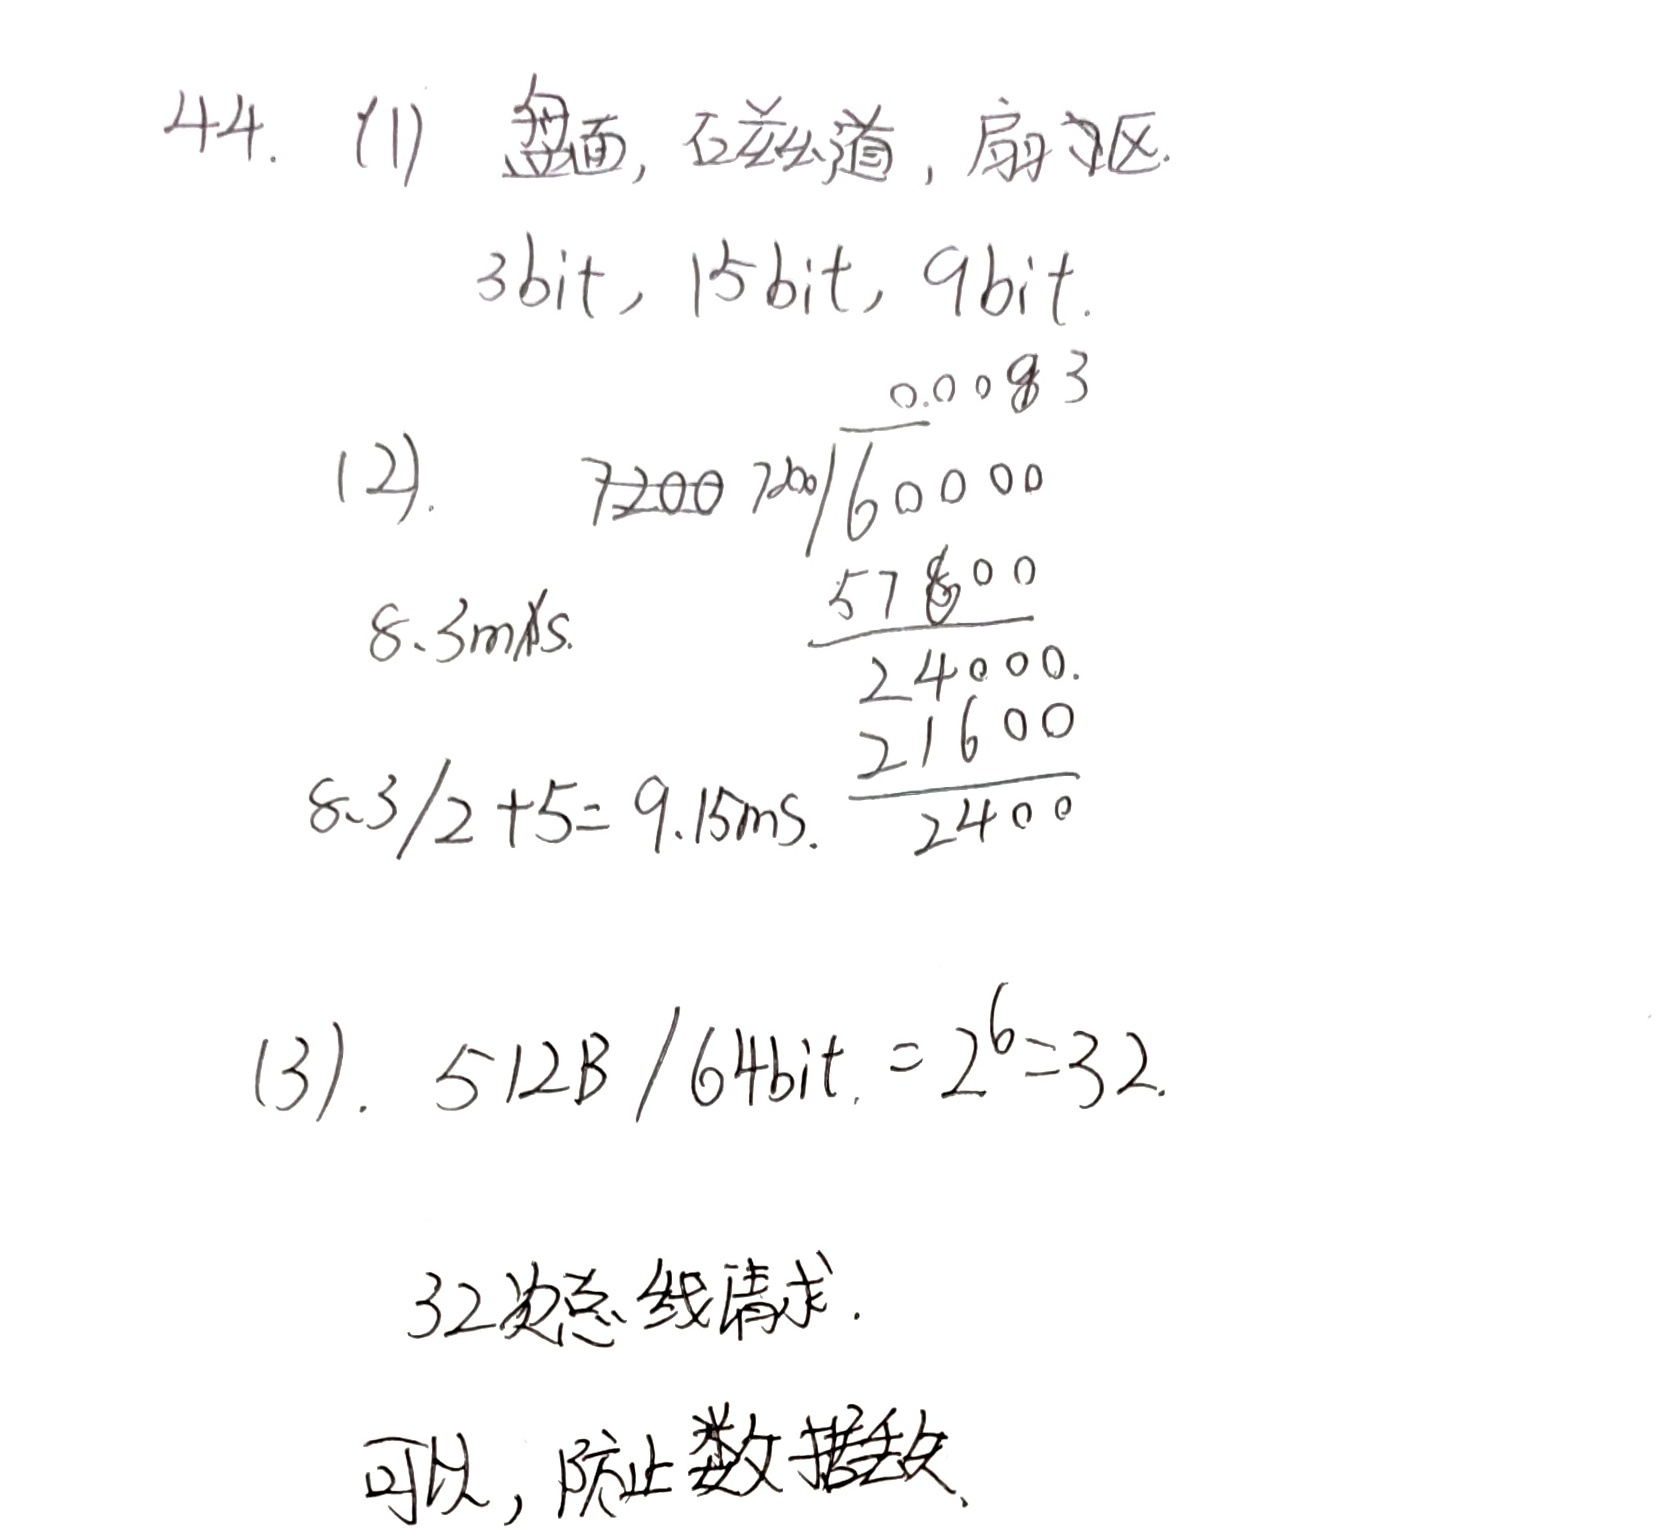 44. (1) 盘面, 磁道, 扇区.
3bit, 15bit, 9bit.
0.0083
(2). 7200 7200/60000
57600
8.3ms.
24000.
21600
8.3/2+5=9.15ms.
2400
(3). 512B/64bit. = 2^6=32.
32次总线请求.
可以, 防止数据丢失.